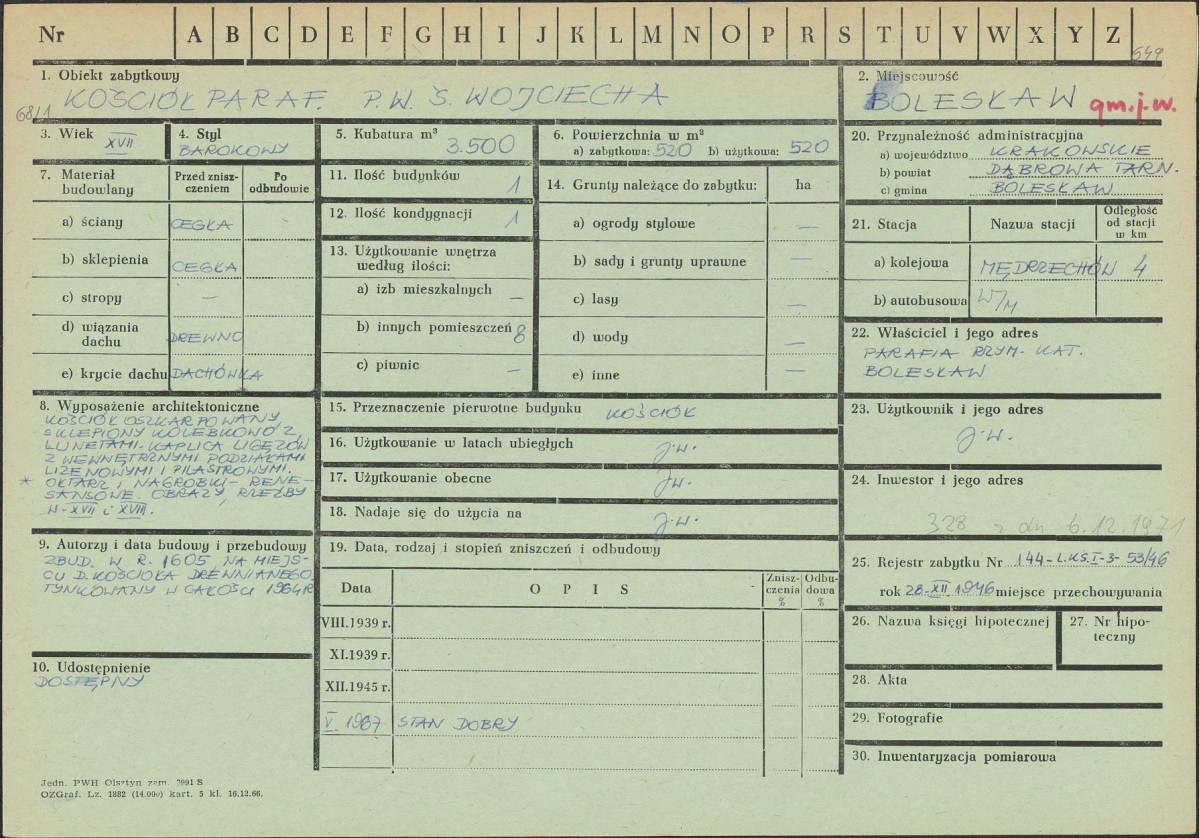 Nr A B C D E F G H I J K L M N O P R S T U V W X Y Z
649
1. Obiekt zabytkowy
KOŚCIÓŁ PARAF. P.W. Ś. WOJCIECHA
68/1
2. Miejscowość
BOLESŁAW gm.j.w.
3. Wiek XVII
4. Styl
BAROKOWY
5. Kubatura m³
3.500
6. Powierzchnia w m²
a) zabytkowa: 520 b) użytkowa: 520
7. Materiał budowlany
Przed zniszczeniem
Po odbudowie
a) ściany CEGŁA
b) sklepienia CEGŁA
c) stropy —
d) wiązania dachu DREWNO
e) krycie dachu DACHÓWKA
8. Wyposażenie architektoniczne
KOŚCIÓŁ OSZKARPOWANY
SKLEPIONY KOLEBKOWO Z
LUNETAMI. KAPLICA LIGĘZÓW
Z WEWNĘTRZNYMI PODZIAŁAMI
LIZENOWYMI I PILASTROWYMI.
* OŁTARZ I NAGROBKI - RENE-
SANSOWE. OBRAZY, RZEŹBY
W - XVII i XVIII.
9. Autorzy i data budowy i przebudowy
ZBUD. W R. 1605 NA MIEJS-
CU D. KOŚCIOŁA DREWNIANEGO.
TYNKOWANY W CAŁOŚCI 1964 R
10. Udostępnienie
DOSTĘPNY
11. Ilość budynków 1
12. Ilość kondygnacji 1
13. Użytkowanie wnętrza
według ilości:
a) izb mieszkalnych —
b) innych pomieszczeń 8
c) piwnic —
14. Grunty należące do zabytku: ha
a) ogrody stylowe —
b) sady i grunty uprawne —
c) lasy —
d) wody —
e) inne —
15. Przeznaczenie pierwotne budynku KOŚCIÓŁ
16. Użytkowanie w latach ubiegłych j.w.
17. Użytkowanie obecne j.w.
18. Nadaje się do użycia na j.w.
19. Data, rodzaj i stopień zniszczeń i odbudowy
Data O P I S Zniszczenia % Odbudowa %
VIII.1939 r.
XI.1939 r.
XII.1945 r.
V 1967 STAN DOBRY
20. Przynależność administracyjna
a) województwo KRAKOWSKIE
b) powiat DĄBROWA TARN.
c) gmina BOLESŁAW
21. Stacja Nazwa stacji Odległość od stacji w km
a) kolejowa MĘDRZECHÓW 4
b) autobusowa W/M
22. Właściciel i jego adres
PARAFIA RZYM-KAT.
BOLESŁAW
23. Użytkownik i jego adres
j.w.
24. Inwestor i jego adres
328 z dn 6.12.1971
25. Rejestr zabytku Nr 144-L.KS.I-3-53/46
rok 28-XII 1946 miejsce przechowywania
26. Nazwa księgi hipotecznej
27. Nr hipoteczny
28. Akta
29. Fotografie
30. Inwentaryzacja pomiarowa
Jedn. PWH Olsztyn zam. 2991 S
OZGraf. Lz. 1882 (14.000) kart. 5 kl. 16.12.66.